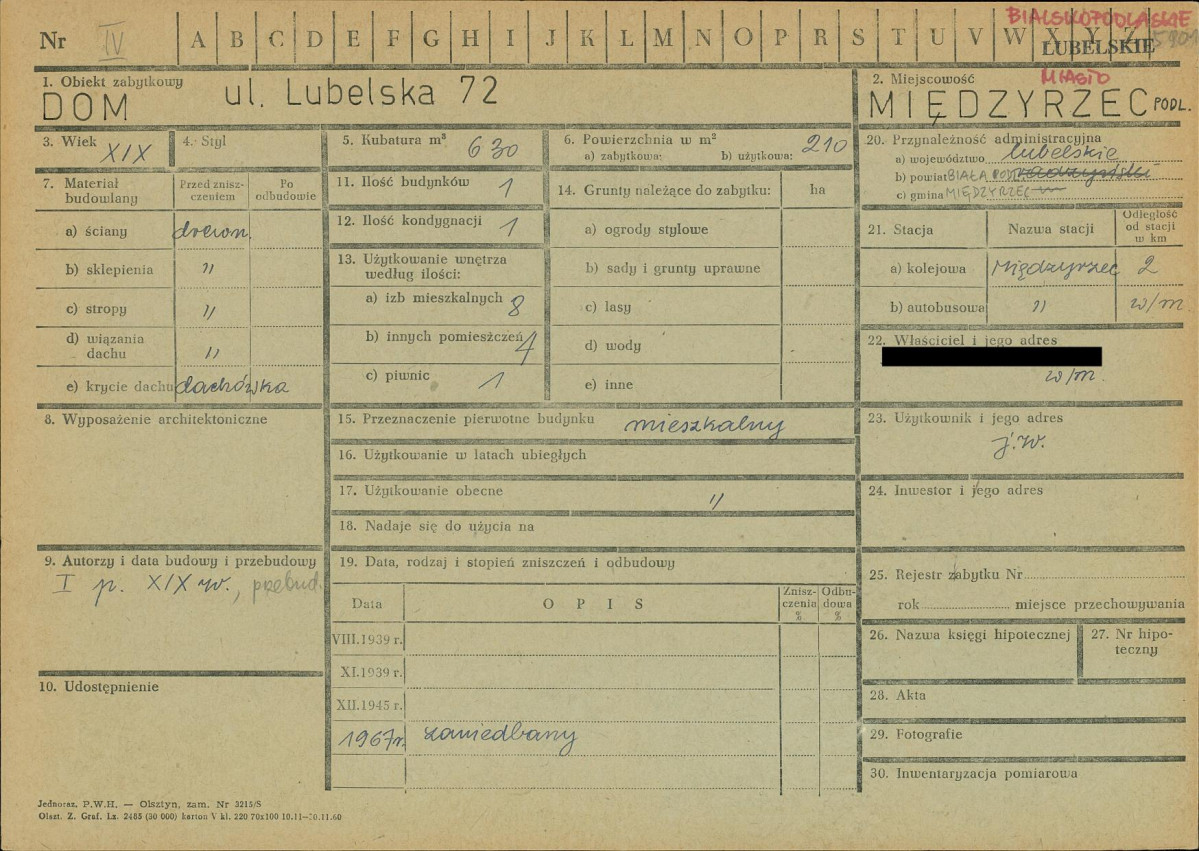 BIALSKOPODLASKIE
Nr IV A B C D E F G H I J K L M N O P R S T U V W X Y Z
LUBELSKIE
MIASTO
1. Obiekt zabytkowy
DOM ul. Lubelska 72
2. Miejscowość
MIĘDZYRZEC PODL.
3. Wiek XIX
4. Styl
5. Kubatura m³ 630
6. Powierzchnia w m²
a) zabytkowa: b) użytkowa: 210
7. Materiał budowlany
Przed zniszczeniem
Po odbudowie
a) ściany drewn.
b) sklepienia "
c) stropy "
d) wiązania dachu "
e) krycie dachu dachówka
8. Wyposażenie architektoniczne
9. Autorzy i data budowy i przebudowy
I p. XIX w., przebud.
10. Udostępnienie
11. Ilość budynków 1
12. Ilość kondygnacji 1
13. Użytkowanie wnętrza
według ilości:
a) izb mieszkalnych 8
b) innych pomieszczeń 4
c) piwnic 1
14. Grunty należące do zabytku: ha
a) ogrody stylowe
b) sady i grunty uprawne
c) lasy
d) wody
e) inne
15. Przeznaczenie pierwotne budynku mieszkalny
16. Użytkowanie w latach ubiegłych
17. Użytkowanie obecne "
18. Nadaje się do użycia na
19. Data, rodzaj i stopień zniszczeń i odbudowy
Data OPIS Zniszczenia % Odbudowa %
VIII.1939 r.
XI.1939 r.
XII.1945 r.
1967 r. zaniedbany
20. Przynależność administracyjna
a) województwo lubelskie
b) powiat BIAŁA PODL. radzyński
c) gmina MIĘDZYRZEC
21. Stacja Nazwa stacji Odległość od stacji w km
a) kolejowa Międzyrzec 2
b) autobusowa " w/m
22. Właściciel i jego adres
w/m.
23. Użytkownik i jego adres
j.w.
24. Inwestor i jego adres
25. Rejestr zabytku Nr
rok miejsce przechowywania
26. Nazwa księgi hipotecznej
27. Nr hipoteczny
28. Akta
29. Fotografie
30. Inwentaryzacja pomiarowa
Jednoraz. P.W.H. — Olsztyn, zam. Nr 3215/S
Olszt. Z. Graf. Lz. 2485 (30 000) karton V kl. 220 70x100 10.11-30.11.60